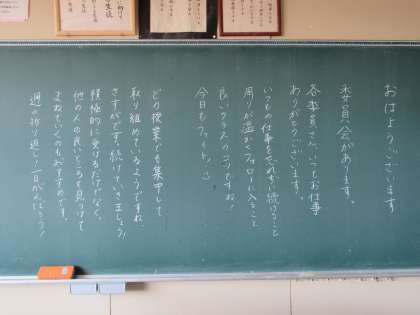 おはようございます
委員会があります。
各委員さん、いつもお仕事
ありがとうございます。
いつもの仕事を忘れずに続けること
周りが温かくフォローに入ること
良いクラスのコツですね!
今日もファイト。
どの授業でも集中して
取り組めているようですね。
さすがです。続けていきましょう!
積極的に受けるだけでなく、
他の人の良いところを見つけて
まねていくのもおすすめです。
週の折り返し!一日がんばろう!